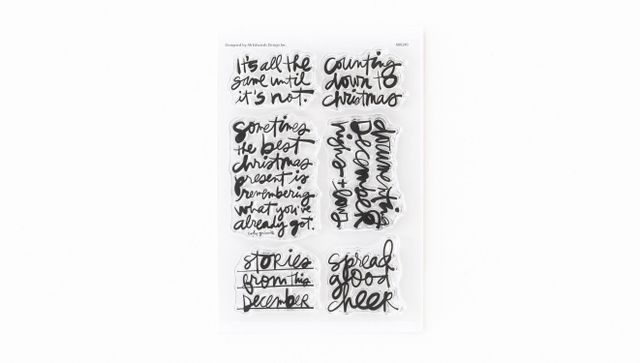 It's all the
same until
it's not.
counting
down to
christmas
sometimes
the best
christmas
present is
remembering
what you've
already got.
documenting
December
nights + days
stories
from this
December
spread
good
cheer